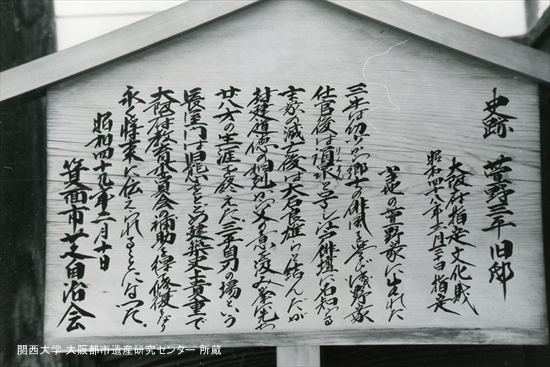 史跡 萱野三平旧邸
大阪府指定文化財
昭和四八年三月三十日指定
当地の萱野家に生れた
三平は幼少から郷土の俳風を学び浅野家
仕官後は涓泉と号し江戸俳壇に名を知る
主家の滅亡後は大石良雄らと結んだが
封建道徳の制約から父の意を汲み
廿八才の生涯を終えた三平自刃の場という
長屋門は旧態をとどめ建築史上貴重で
大阪府教育委員会の補助を得て修復なり
永く将来に伝えられることになった。
昭和四十九年二月十日
箕面市芝自治会
関西大学 大阪都市遺産研究センター 所蔵